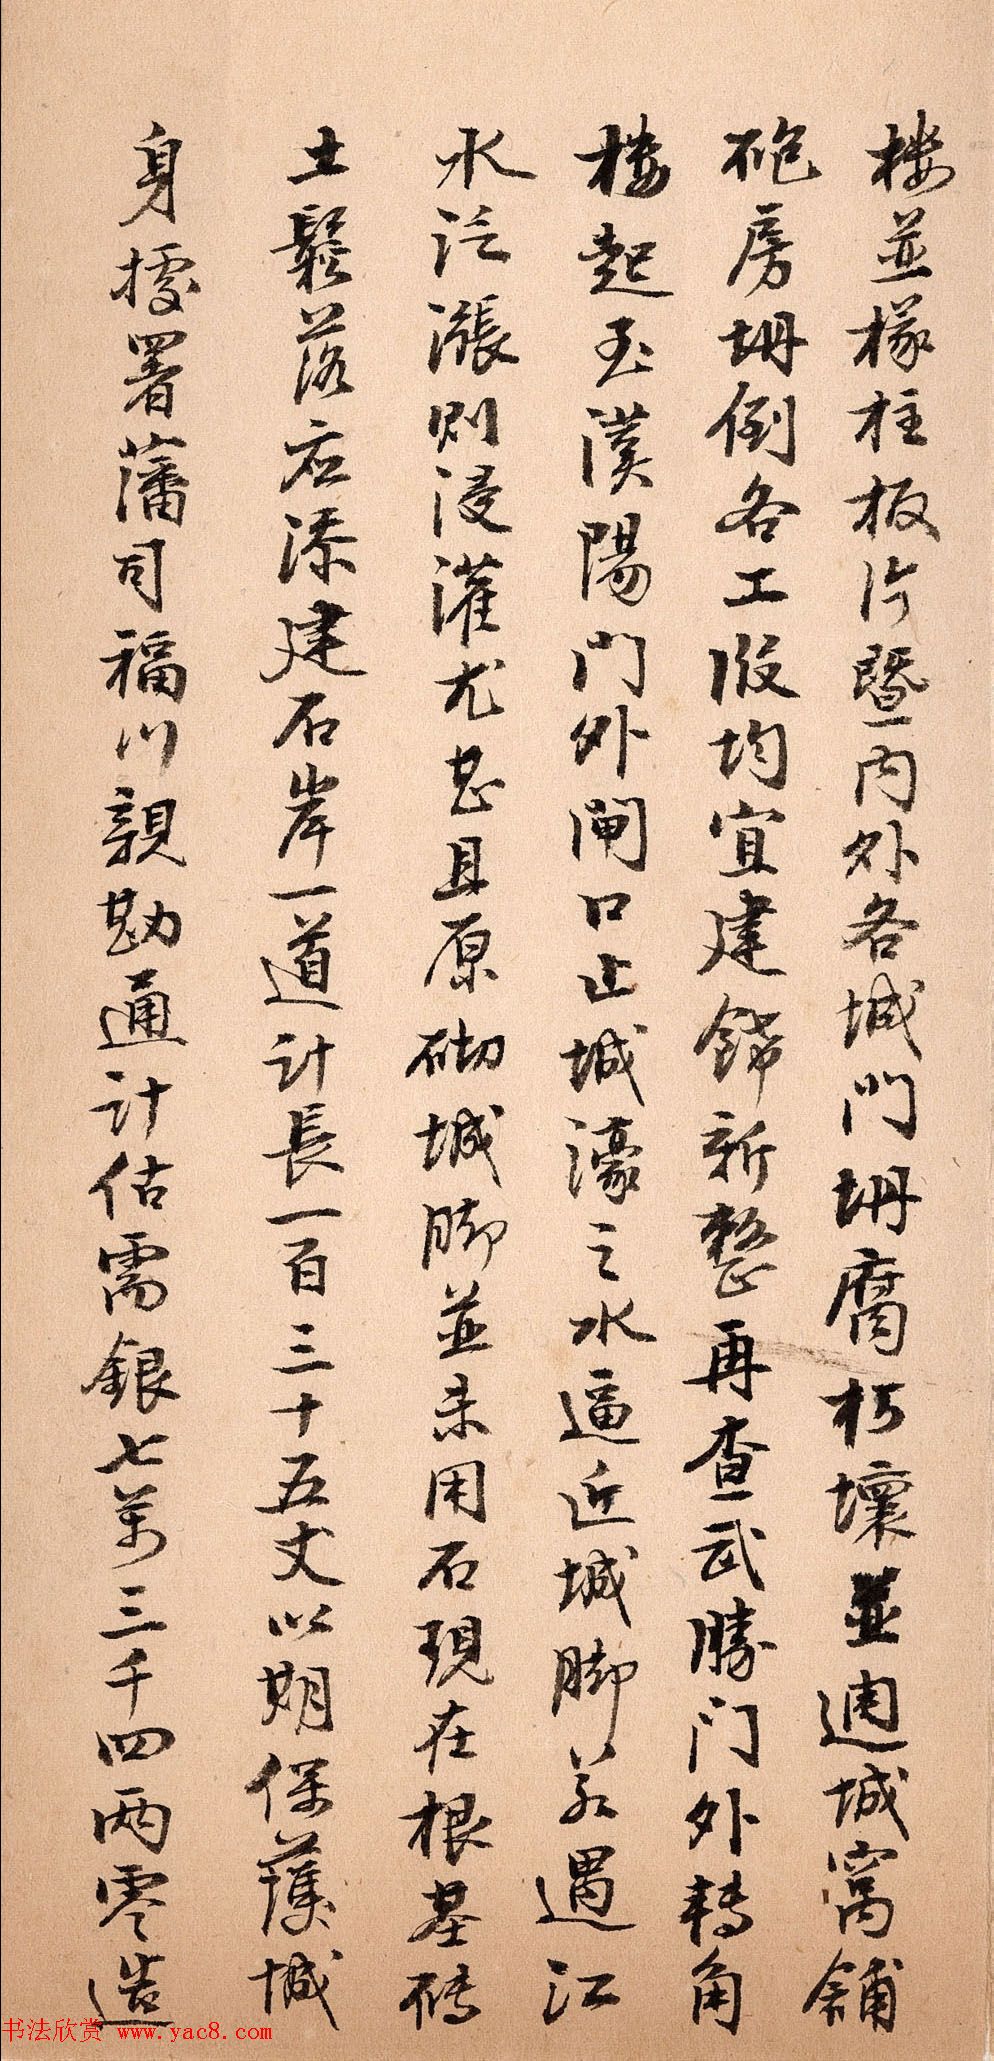 楼並椽柱板片暨内外各城門坍腐朽壞並週城窩舖
砲房坍倒各工段均宜建餙新整再查武勝门外轉角
楼起至漢陽门外閘口止城濠之水逼近城脚若遇江
水泛漲則浸灌尤甚且原砌城脚並未用石現在根基磚
土鬆落应添建石岸一道計長一百三十五丈以期保護城
身據署藩司福川親勘通計估需銀七萬三千四兩零造
书法欣赏 www.yac8.com